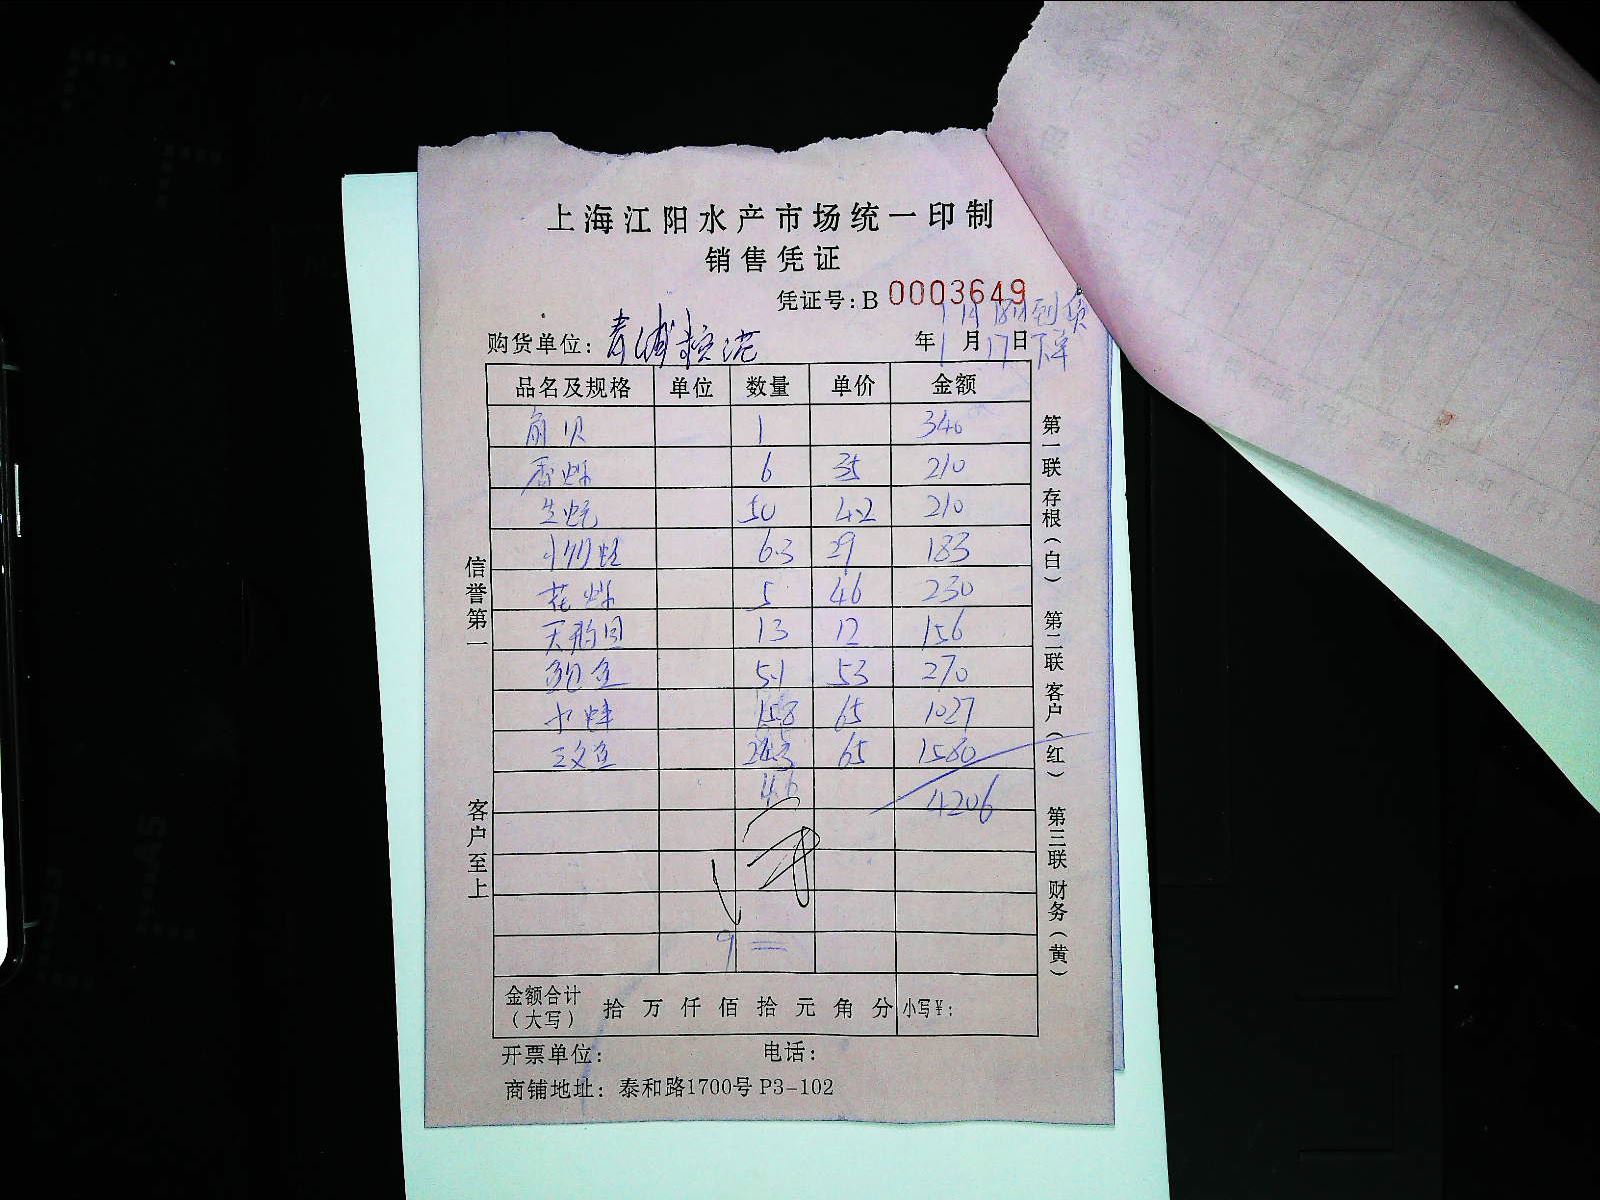 上海江阳水产市场统一印制
销售凭证
凭证号:B 0003649
1月18日到货
购货单位: 青浦 年1月17日下单
品名及规格 单位 数量 单价 金额
角贝 1 340
香螺 6 35 210
生蚝 50 4.2 210
6.3 29 183
花螺 5 46 230
天鹅 13 12 156
鲍鱼 5.1 53 270
15.8 65 1027
三文鱼 24.3 65 1580
4.6 4206
9
金额合计(大写) 拾 万 仟 佰 拾 元 角 分 小写¥:
开票单位: 电话:
商铺地址: 泰和路1700号 P3-102
信誉第一
客户至上
第一联 存根(白)
第二联 客户(红)
第三联 财务(黄)